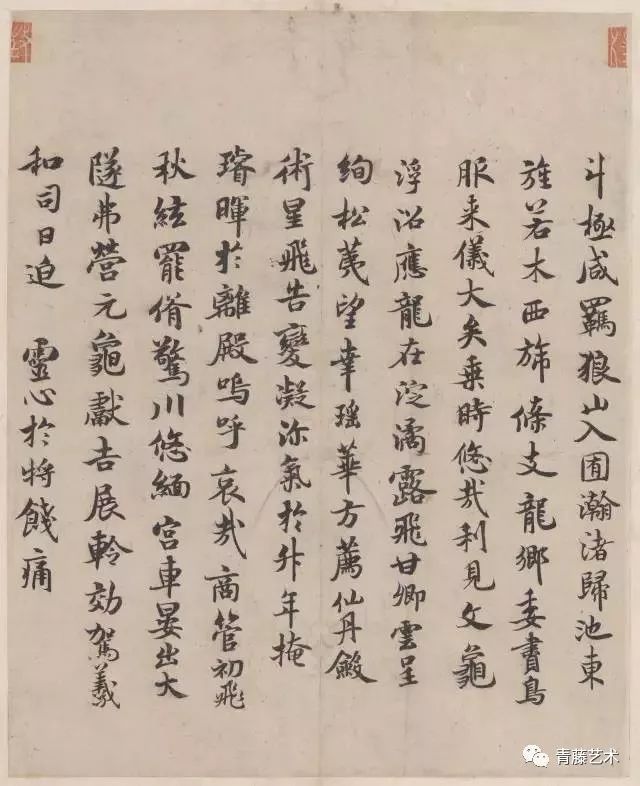 斗極咸羈狼山入囿瀚渚歸池東
旌若木西旆條支龍鄉委賮鳥
服来儀大矣乗時悠哉利見文龜
浮沼應龍在淀濡露飛甘卿雲呈
絢松荑望幸瑤華方薦仙丹
術星飛告變凝沴氣於升年掩
璿暉於離殿嗚呼哀哉商管初飛
秋絃罷脩驚川悠緬宮車晏出大
隧弗營元龜獻吉展軨効駕羲
和司日迫 靈心於將餞痛
青藤艺术